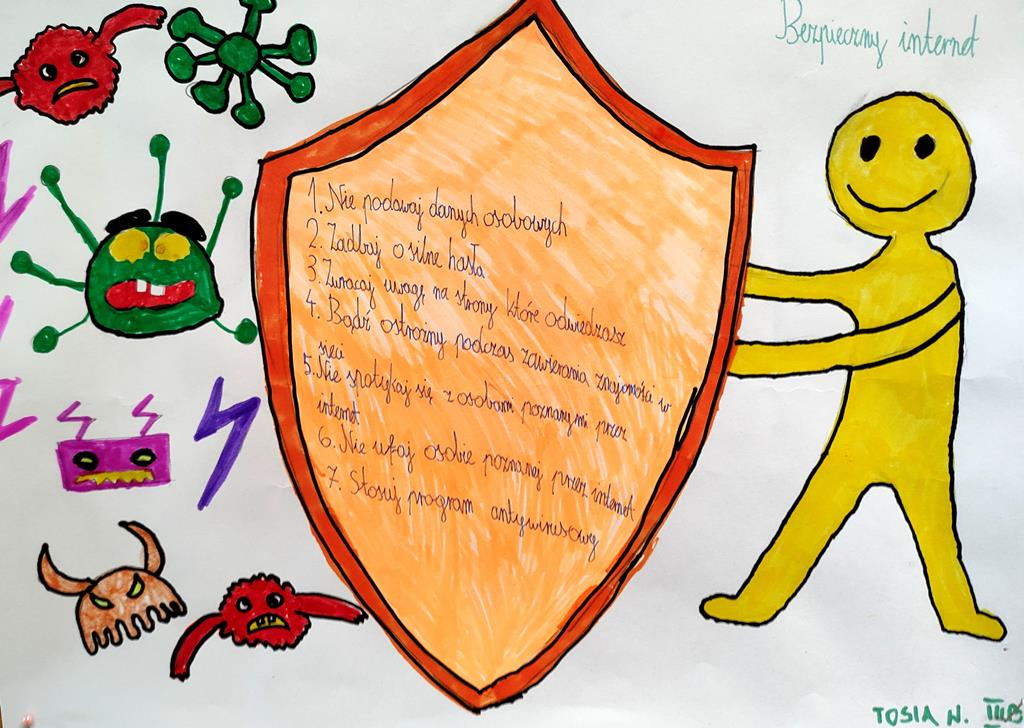 Bezpieczny internet
1. Nie podawaj danych osobowych
2. Zadbaj o silne hasła
3. Zwracaj uwagę na strony które odwiedzasz
4. Bądź ostrożny podczas zawierania znajomości w
sieci
5. Nie spotykaj się z osobami poznanymi przez
internet
6. Nie ufaj osobie poznanej przez internet
7. Stosuj program antywirusowy
TOSIA N.